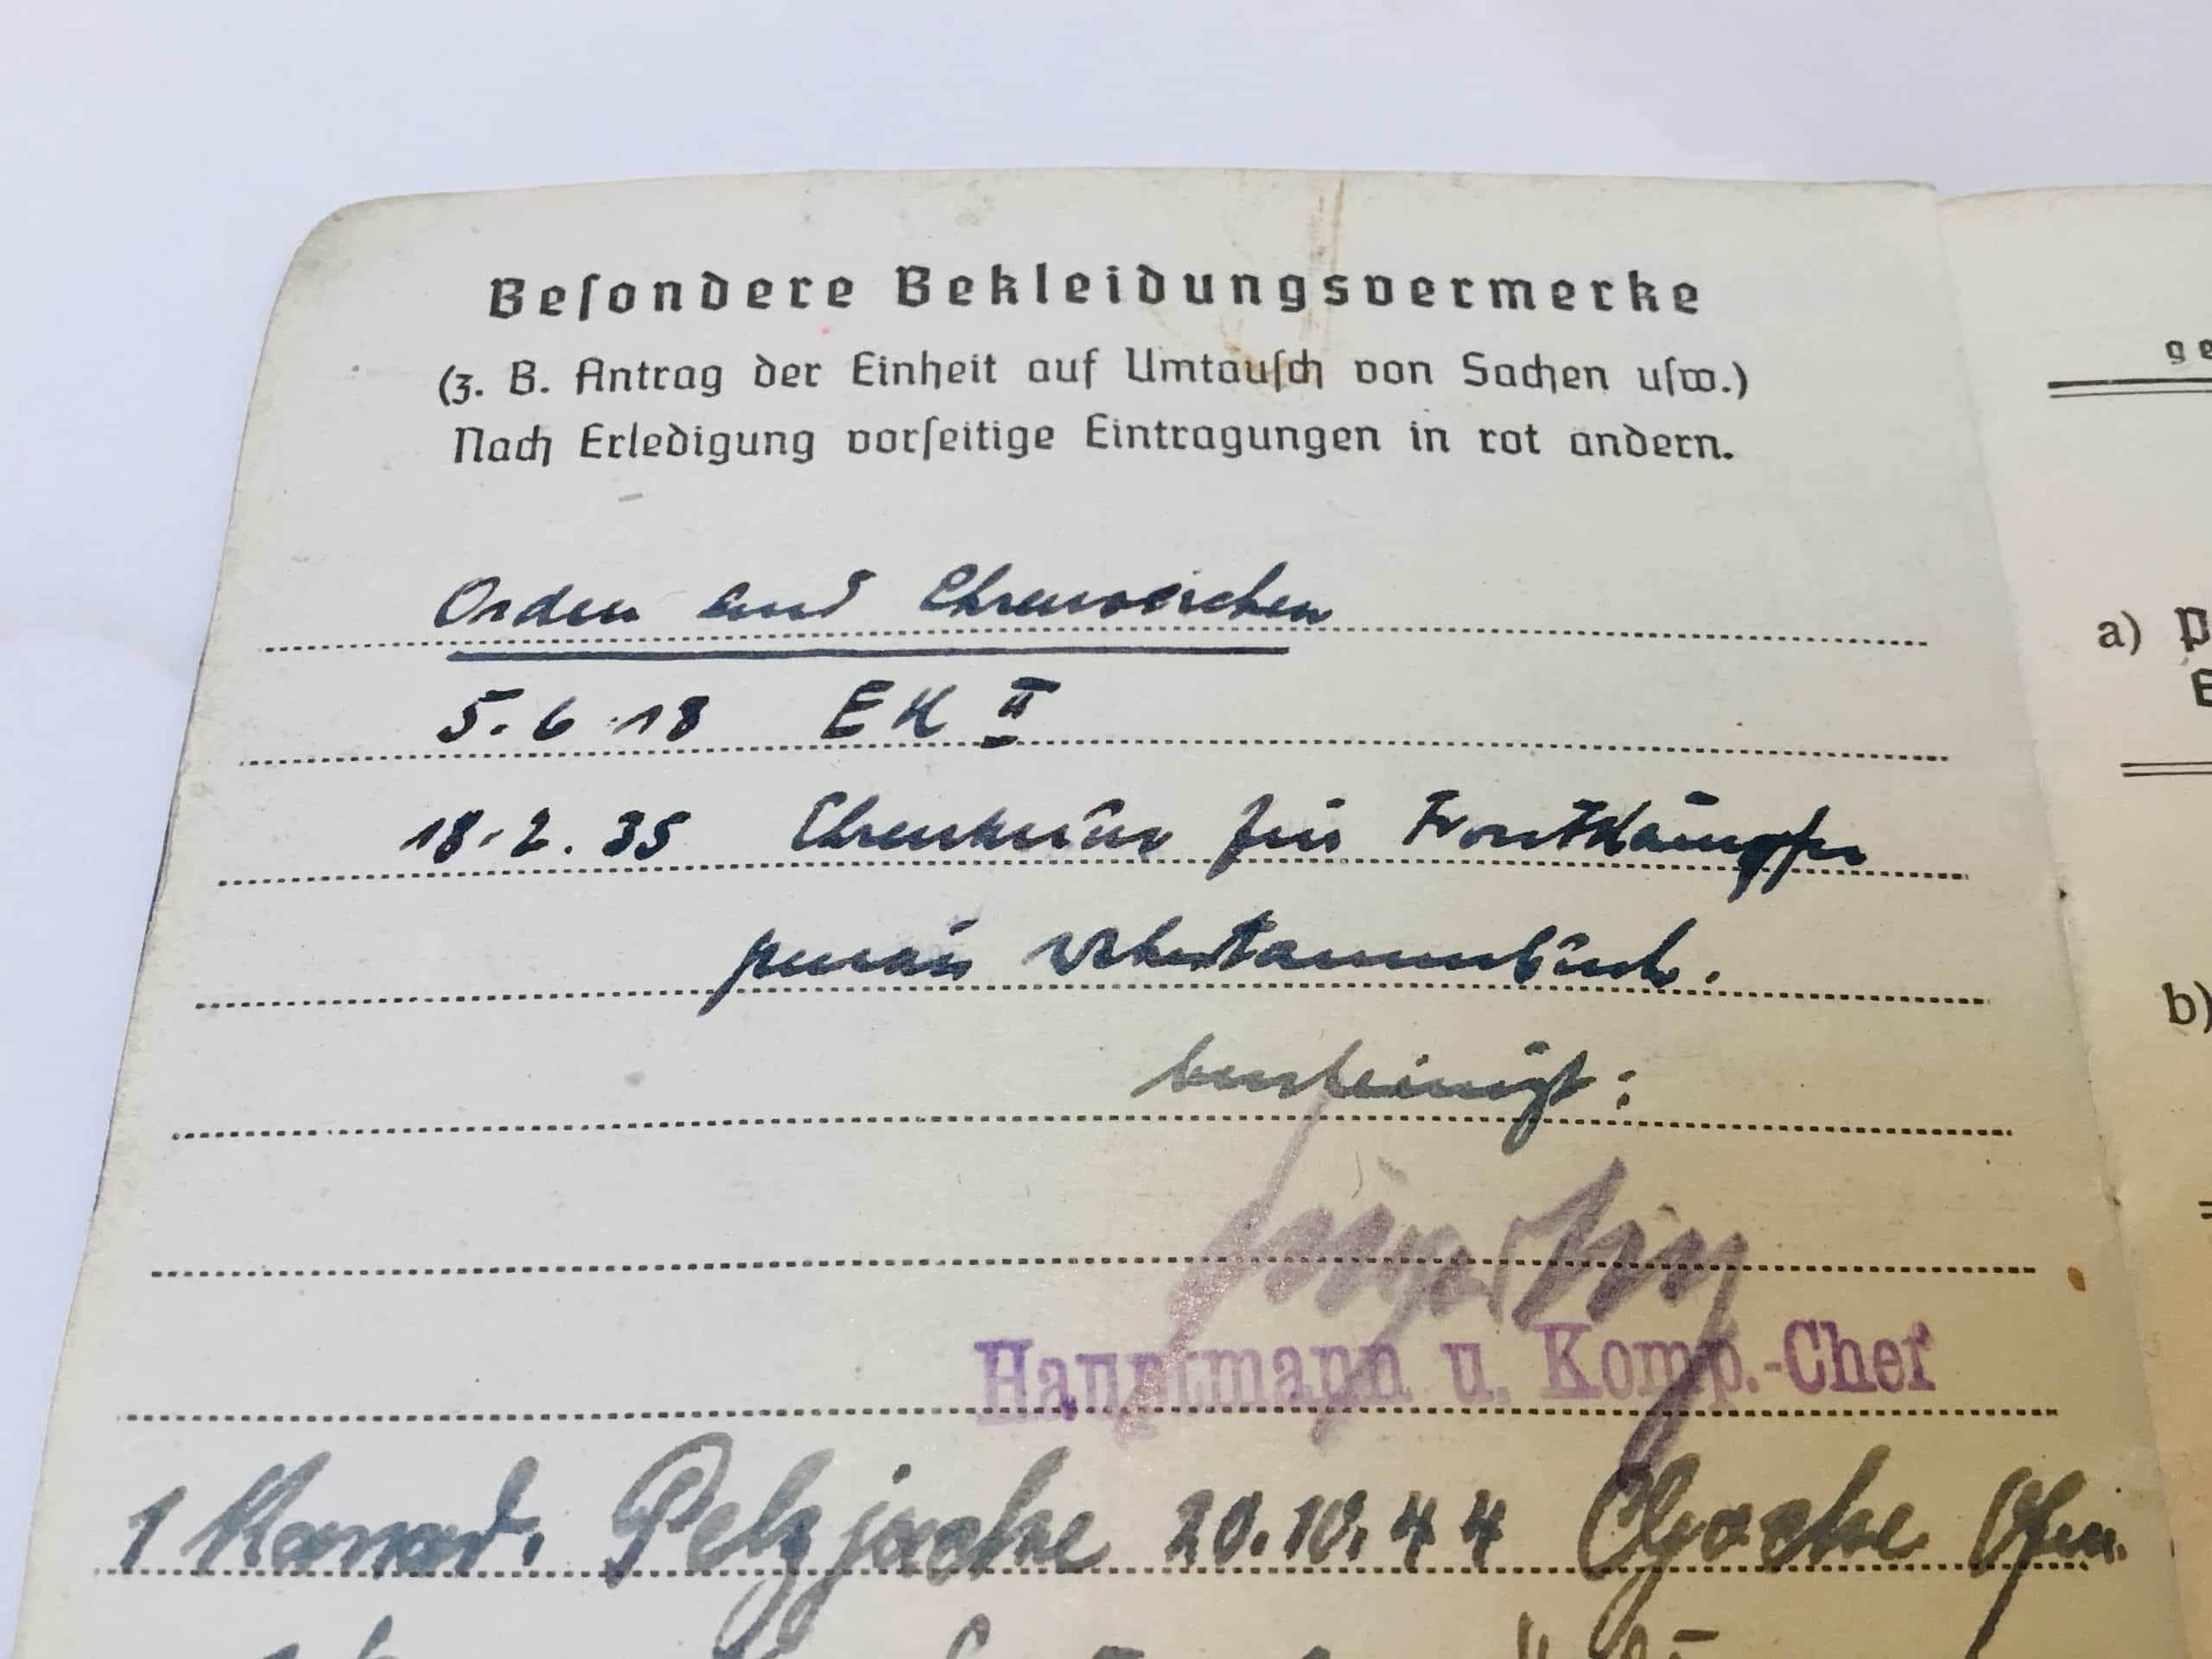 Besondere Bekleidungsvermerke
(z. B. Antrag der Einheit auf Umtausch von Sachen usw.)
Nach Erledigung vorseitige Eintragungen in rot andern.
Orden und Ehrenzeichen
5.6.18 EK II
18.2.35 Ehrenkreuz für Frontkämpfer
Wehrstammbuch.
bescheinigt:
Hauptmann u. Komp.-Chef
1 Pelzjacke 20.10.44
ge
a) P
E
b)